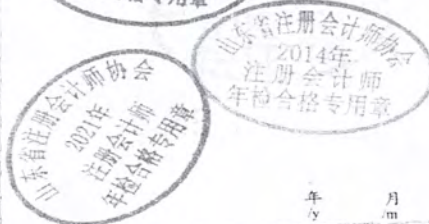 专用章
山东省注册会计师协会
2014年
注册会计师
年检合格专用章
山东省注册会计师协会
2021年
注册会计师
年检合格专用章
年 月
/y /m